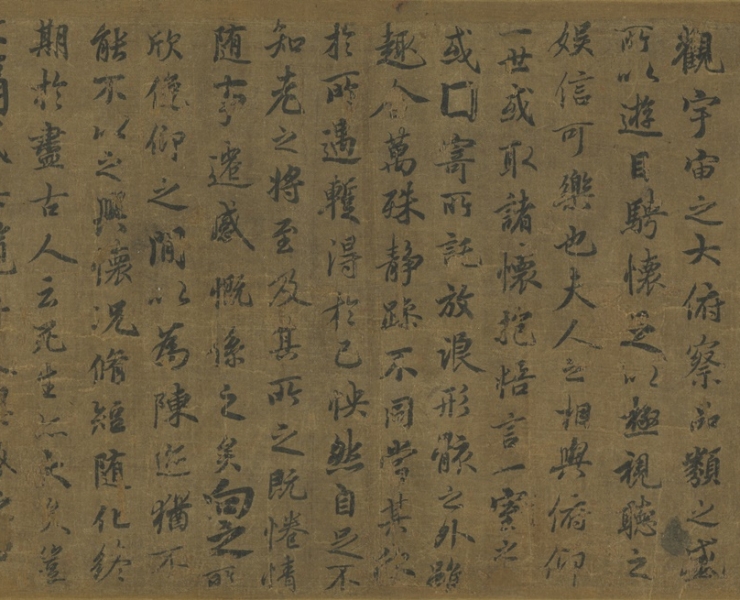 觀宇宙之大俯察品類之盛
所以遊目騁懷足以極視聽之
娛信可樂也夫人之相與俯仰
一世或取諸懷抱悟言一室之
或囗寄所託放浪形骸之外雖
趣舍萬殊靜躁不同當其欣
於所遇蹔得於己怏然自足不
知老之將至及其所之既惓情
随事遷感慨係之矣向之所
欣俛仰之閒以為陳迹猶不
能不以之興懷況脩短随化終
期於盡古人云死生亦大矣豈